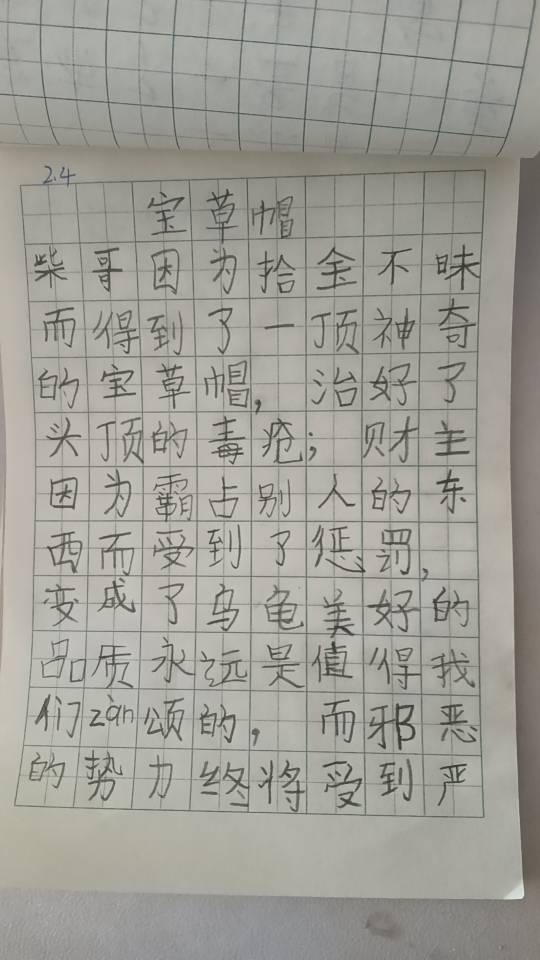 2.4
宝草帽
柴哥因为拾金不昧
而得到了一顶神奇
的宝草帽，治好了
头顶的毒疮；财主
因为霸占别人的东
西而受到了惩罚，
变成了乌龟美好的
品质永远是值得我
们zàn颂的，而邪恶
的势力终将受到严